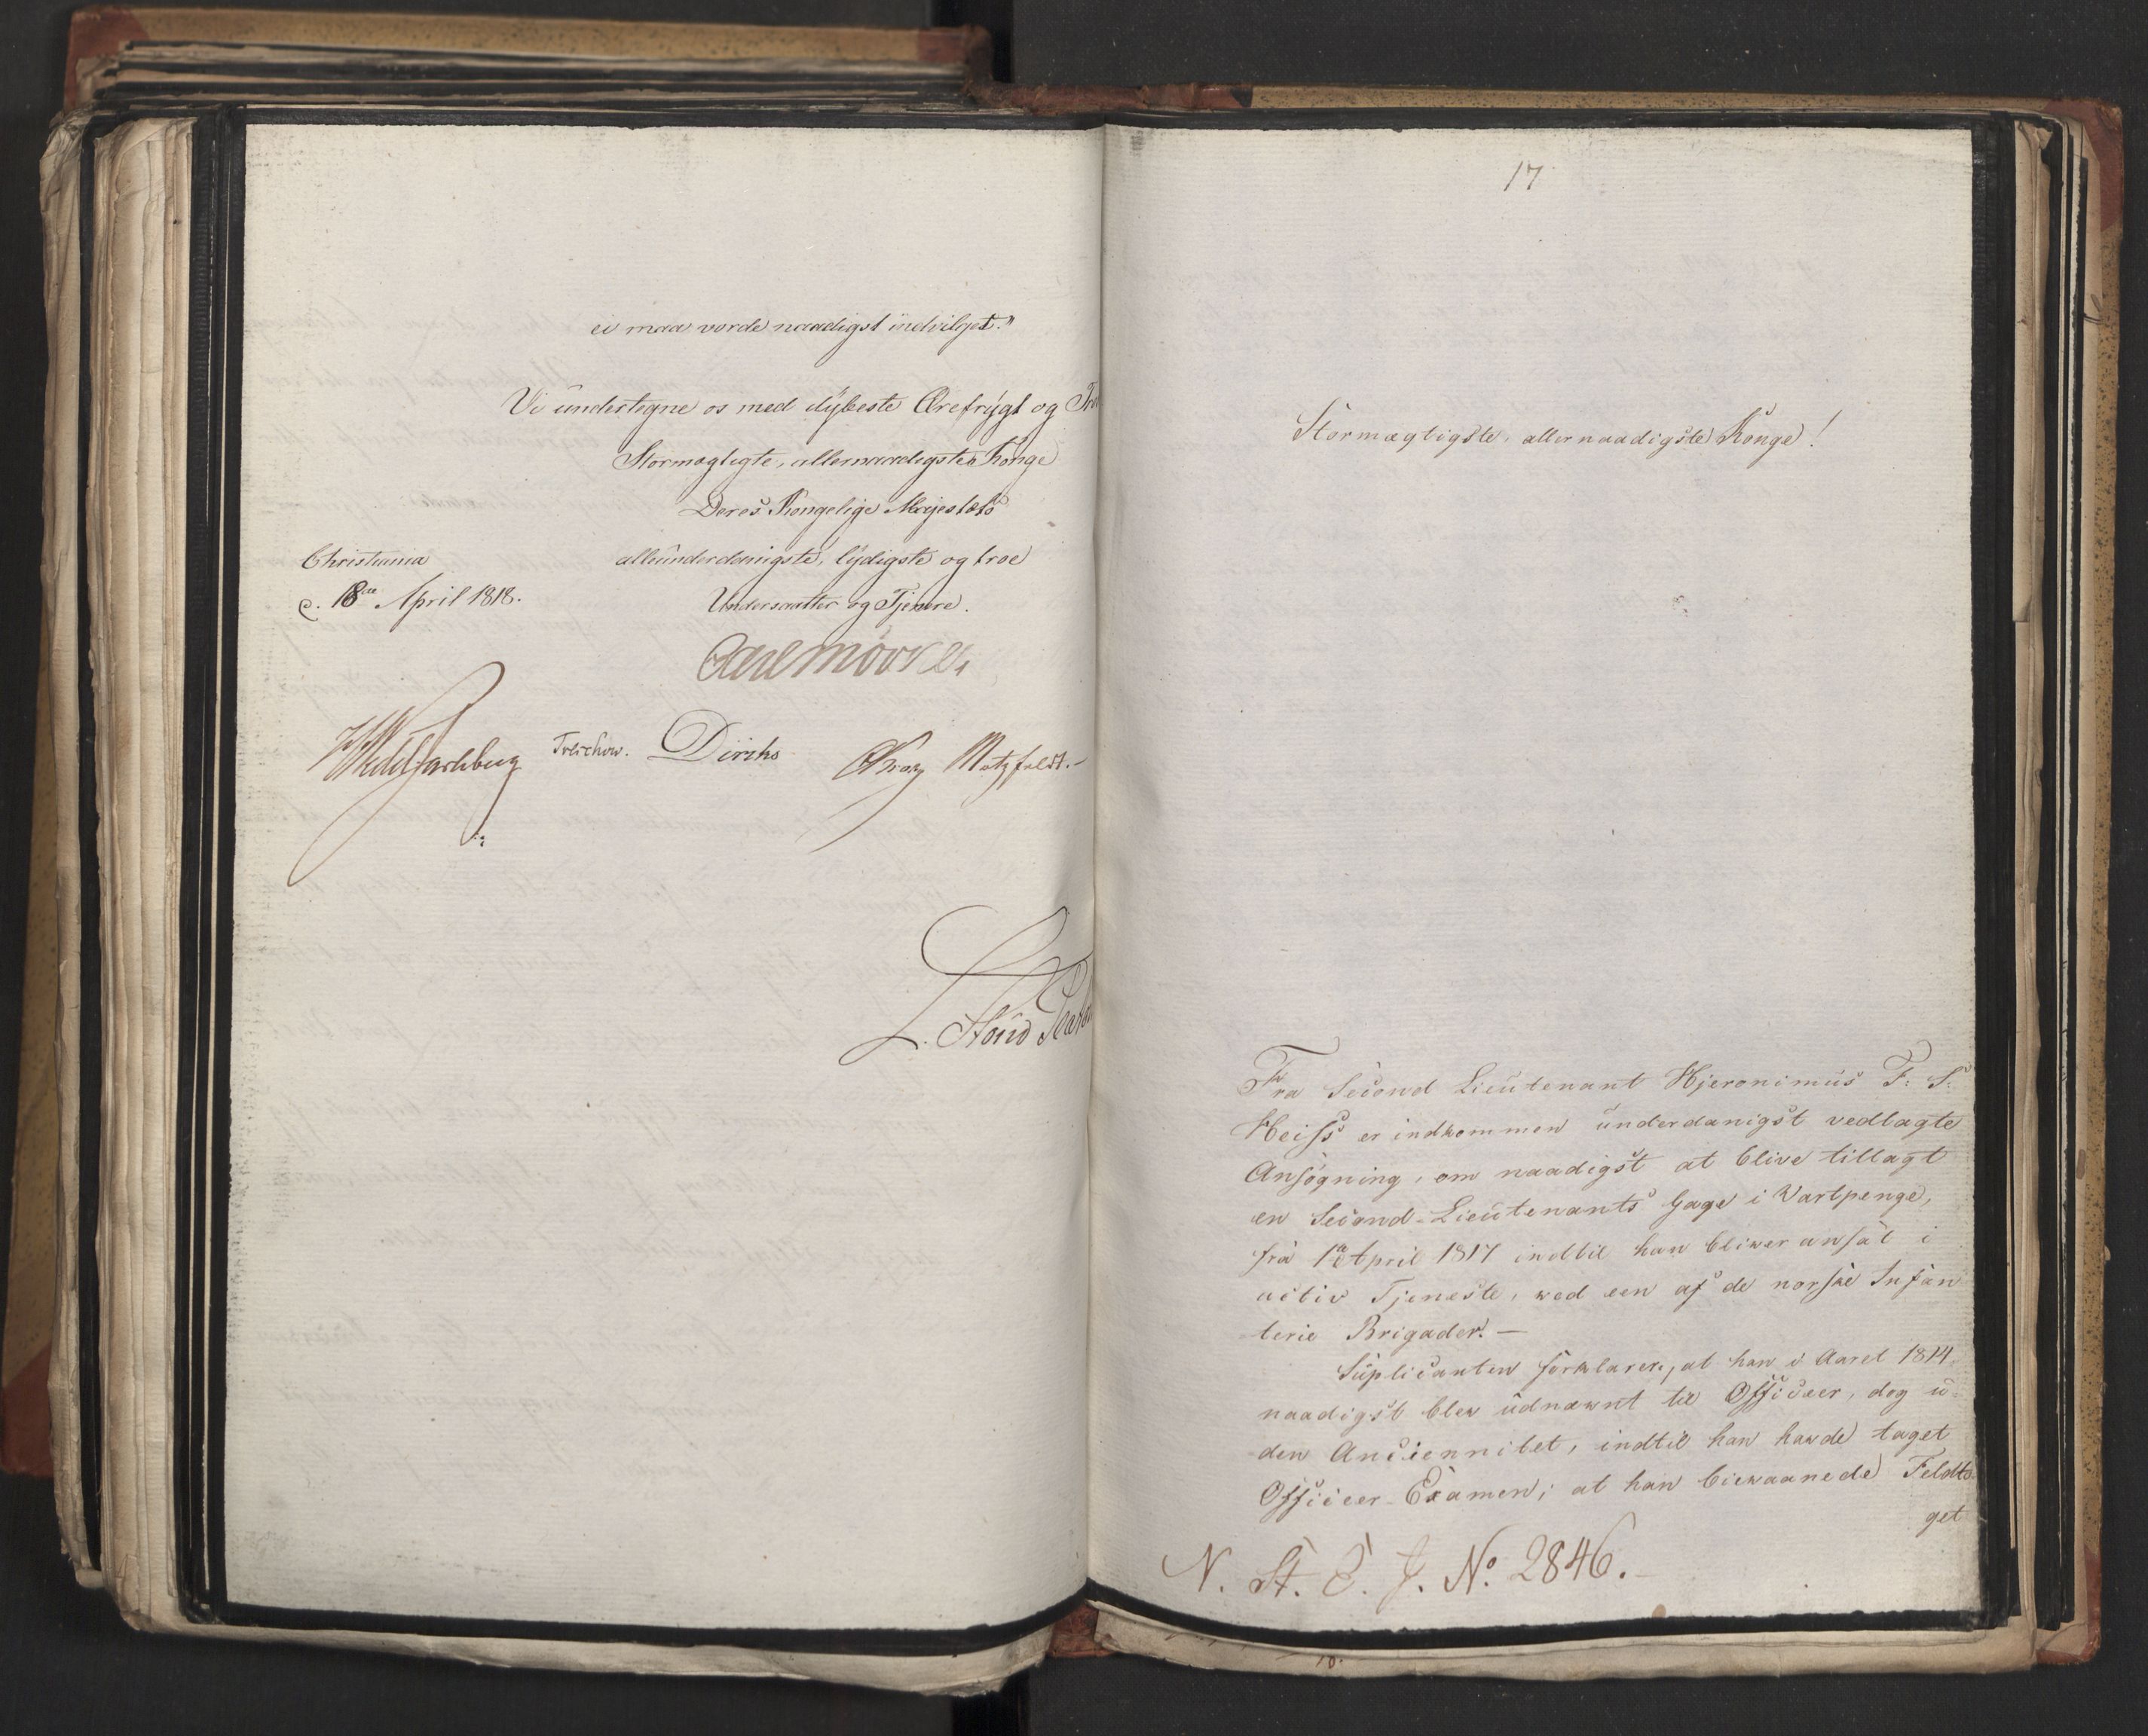 ei maa vorde naadigst indvilget."
Vi undertegne os med dybeste Ærefrygt og
Stormægtigste, allernaadigste Konge
Deres Kongelige Majestæts
Christiania
allerunderdanigste, lydigste og troe
d. 18de April 1818.
Undersaatter og Tjenere.
Carl Mörner
Wedel Jarlsberg Treschow. Diriks Krog Motzfeldt.
17
Stormægtigste, allernaadigste Konge!
Fra Second Lieutenant Hjeronimus F: S:
Heiss er indkommen underdanigst vedlagte
Ansøgning, om naadigst at blive tillagt
en Second-Lieutenants Gage i Vartpenge,
fra 1ste April 1817 indtil han bliver ansat i
activ Tjeneste, ved een af de norske Infan
terie Brigader. —
Suplicanten forklarer, at han i Aaret 1814
naadigst blev udnævnt til Officeer, dog u-
den Anciennitet, indtil han havde taget
Officeer-Examen; at han bievaanede Feldto-
get
N. St. E. J. No. 2846.